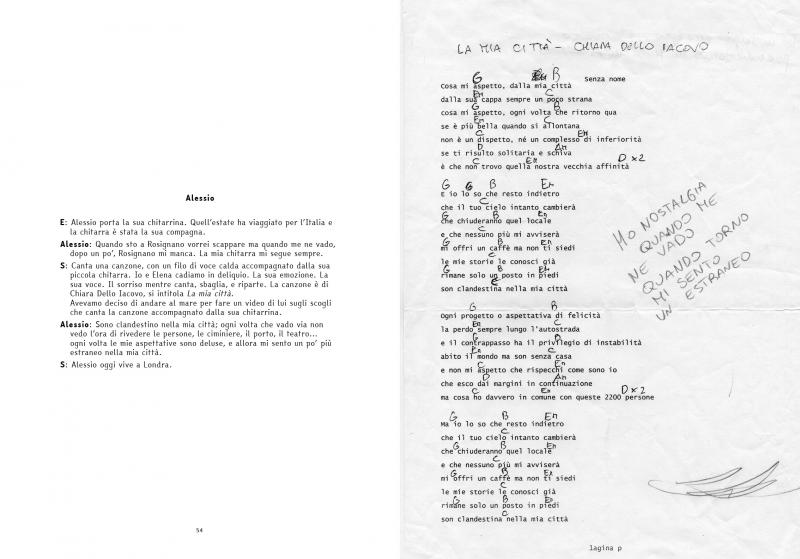 Alessio
E: Alessio porta la sua chitarrina. Quell'estate ha viaggiato per l'Italia e
la chitarra è stata la sua compagna.
Alessio: Quando sto a Rosignano vorrei scappare ma quando me ne vado,
dopo un po', Rosignano mi manca. La mia chitarra mi segue sempre.
S: Canta una canzone, con un filo di voce calda accompagnato dalla sua
piccola chitarra. Io e Elena cadiamo in deliquio. La sua emozione. La
sua voce. Il sorriso mentre canta, sbaglia, e riparte. La canzone è di
Chiara Dello Iacovo, si intitola La mia città.
Avevamo deciso di andare al mare per fare un video di lui sugli scogli
che canta la canzone accompagnato dalla sua chitarrina.
Alessio: Sono clandestino nella mia città; ogni volta che vado via non
vedo l'ora di rivedere le persone, le ciminiere, il porto, il teatro...
ogni volta le mie aspettative sono deluse, e allora mi sento un po' più
estraneo nella mia città.
S: Alessio oggi vive a Londra.
54
LA MIA CITTÀ - CHIARA DELLO IACOVO
G B Senza nome
Cosa mi aspetto, dalla mia città
Em C
dalla sua cappa sempre un poco strana
G B
cosa mi aspetto, ogni volta che ritorno qua
Em C
se è più bella quando si allontana
C Em
non è un dispetto, né un complesso di inferiorità
D Am
se ti risulto solitaria e schiva
C Em D x2
è che non trovo quella nostra vecchia affinità
G G B Em
E io lo so che resto indietro
C
che il tuo cielo intanto cambierà
G B Em
che chiuderanno quel locale
C
e che nessuno più mi avviserà
G B Em
mi offri un caffè ma non ti siedi
C
le mie storie le conosci già
G B Em
rimane solo un posto in piedi
C
son clandestina nella mia città
HO NOSTALGIA
QUANDO ME
NE VADO
QUANDO TORNO
MI SENTO
UN ESTRANEO
G B
Ogni progetto o aspettativa di felicità
Em C
la perdo sempre lungo l'autostrada
G B
e il contrappasso ha il privilegio di instabilità
Em C
abito il mondo ma son senza casa
C Em
e non mi aspetto che rispecchi come sono io
D Am
che esco dai margini in continuazione
C Em D x2
ma cosa ho davvero in comune con queste 2200 persone
G B Em
Ma io lo so che resto indietro
C
che il tuo cielo intanto cambierà
G B Em
che chiuderanno quel locale
C
e che nessuno più mi avviserà
G B Em
mi offri un caffè ma non ti siedi
C
le mie storie le conosci già
G B Em
rimane solo un posto in piedi
C
son clandestina nella mia città
lagina p